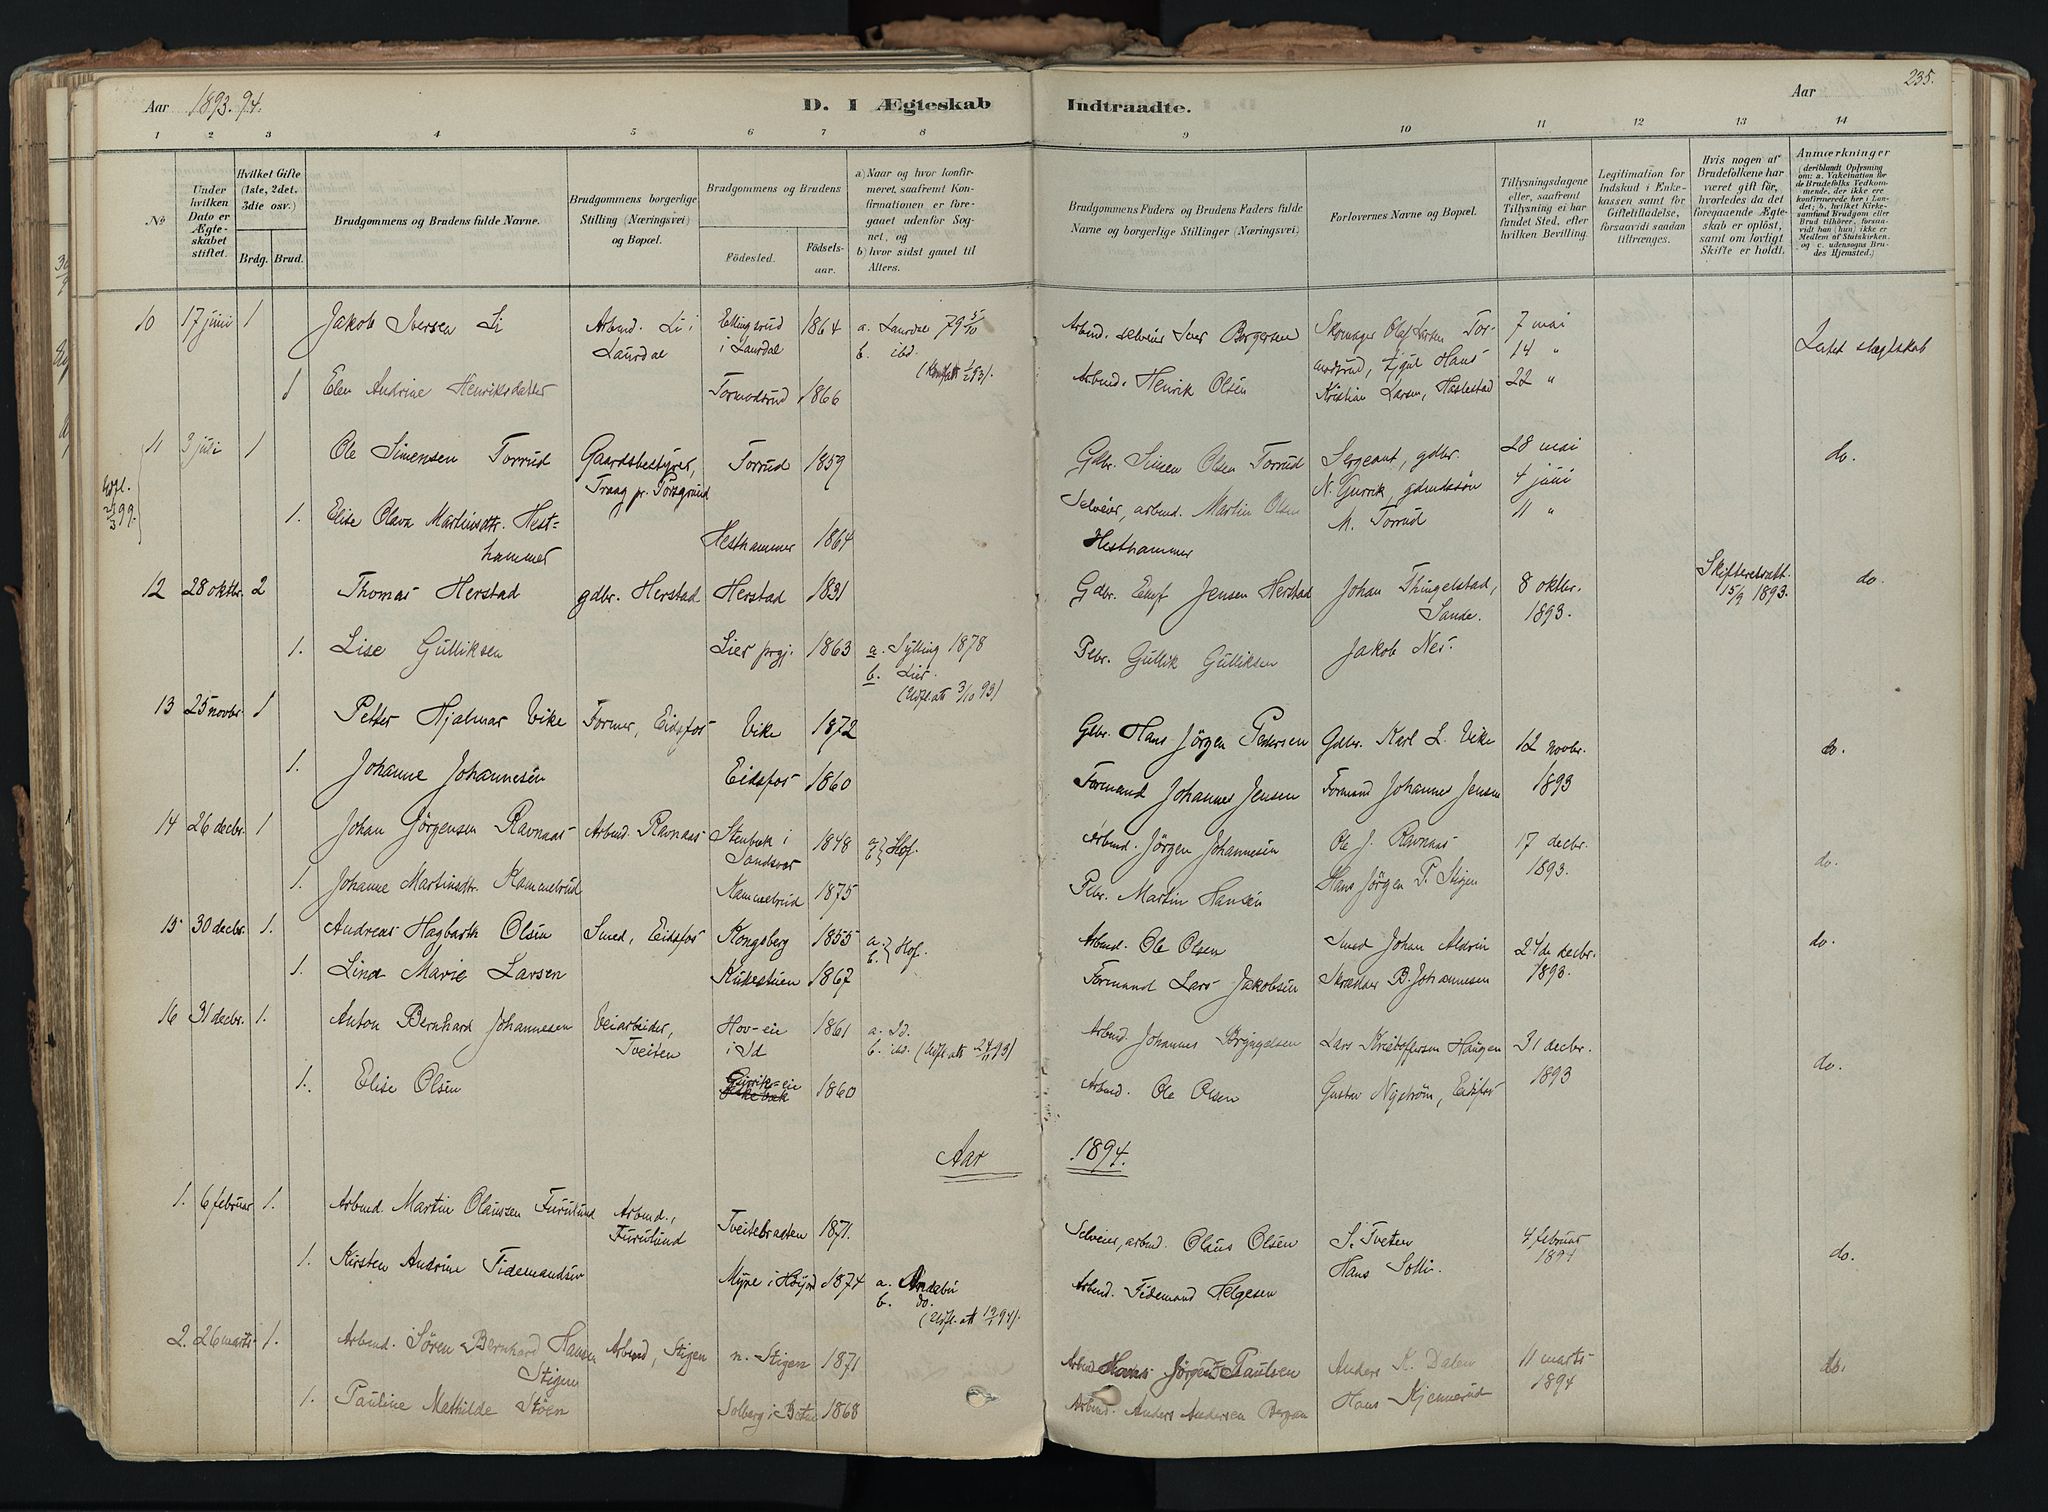 Aar 1893. 94.
D. I Ægteskab
Indtraadte.
Aar
235.
1 2 3 4 5 6 7 8
9 10 11 12 13 14
No
Under hvilken Dato er Ægteskabet stiftet.
Hvilket Gifte (1ste, 2det, 3die osv.)
Brdg. Brud.
Brudgommens og Brudens fulde Navne.
Brudgommens borgerlige Stilling (Næringsvei) og Bopæl.
Brudgommens og Brudens
Födested.
Födselsaar.
a) Naar og hvor konfirmeret, saafremt Konfirmationen er foregaaet udenfor Sognet, og
b) hvor sidst gaaet til Alters.
Brudgommens Faders og Brudens Faders fulde Navne og borgerlige Stillinger (Næringsvei).
Forlovernes Navne og Bopæl.
Tillysningsdagene eller, saafremt Tillysning ei har fundet Sted, efter hvilken Bevilling.
Legitimation for Indskud i Enkekassen samt for Giftetilladelse, forsaavidt saadan tiltrænges.
Hvis nogen af Brudefolkene har været gift för, hvorledes da det foregaaende Ægteskab er oplöst, samt om lovligt Skifte er holdt.
Anmærkninger
(deriblandt Oplysning om: a. Vakcination for de Brudefolks Vedkommende, der ikke ere konfirmerede her i Landet, b. hvilket Kirkesamfund Brudgom eller Brud tilhörer, forsaavidt han (hun) ikke er Medlem af Statskirken, og c. udensogns Brudes Hjemsted.)
10 17 juni 1 Jakob Iversen Li Arbmd. Li i Laurdal i Laurdal 1864 a. Laurdal 79 5/10
b. ibd.
Arbmd. selveier Iver Borgersen Skomager Olaf Larsen Tormodsrud, 7 mai
14 "
1 Elen Andrine Henriksdatter Tormodsrud 1866
Arbmd. Henrik Olsen Kristian Larsen, Hestestad 22 "
11 3 juli 1 Ole Simensen Torrud Gaardsbestyrer, Traag pr. Porsgrund Torrud 1859
Gdbr. Simen Olsen Torrud Sergeant, gdbr. N. Gurrik, gdmdssön M. Torrud 28 mai
4 juni
11 "
do.
Udfl. 2/3 99.
1. Elise Olava Martinsdtr. Hesthammer Hesthammer 1864
Selveier, arbmd. Martin Olsen Hesthammer
12 28 oktbr. 2 Thomas Herstad gdbr. Herstad Herstad 1831
Gdbr. Jensen Herstad Johan Thingelstad, Sande. 8 oktbr. 1893. Skifteretsatt. 15/9 1893. do.
1. Lise Gulliksen Lier prgj. 1863 a. Sylling 1878
b. Lier.
(Udfl. att 3/10 93)
Pebr. Gullik Gulliksen Jakob Nes.
13 25 novbr. 1 Petter Hjalmar Vike Former, Eidsfos Vike 1872
Gdbr. Hans Jörgen Pedersen Gdbr. Karl L. Vike 12 novbr. 1893 do.
1. Johanne Johannesen Eidsfos 1860
Formand Johannes Jensen Formand Johannes Jensen
14 26 decbr. 1 Johan Jörgensen Ravnaas Arbmd. Ravnaas Stenbæk i Sandsvær 1848 a. b. } Hof.
Arbmd. Jörgen Johannesen Ole J. Ravnaas 17 decbr. 1893. do.
1. Johanne Martinsdtr. Kammebrud Kammebrud 1875
Pebr. Martin Hansen Hans Jörgen P. Stigen
15 30 decbr. 1. Andreas Hagbarth Olsen Smed, Eidsfos Kongsberg 1855 a. b. } Hof.
Arbmd. Ole Olsen Smed Johan Aldrin 24de decbr. 1893. do.
1. Lina Marie Larsen Kikestuen 1867
Formand Lars Jakobsen Skrædder B. Johannesen
16 31 decbr. 1. Anton Bernhard Johannesen Veiarbeider, Tveiten Hov-eie i Id 1861 a. Id.
b. ibd. (Udfl. att 24/11 93)
Arbmd. Johannes Bryngelsen Lars Kristoffersen Haugen 31 decbr. 1893 do.
1. Elise Olsen Gurrik-eie 1860
Arbmd. Ole Olsen Gustav Nyström, Eidsfos
Aar 1894.
1. 6 februar 1. Arbmd. Martin Olaussen Furulund Arbmd., Furulund Tveitebraaten 1871.
Selveier, arbmd. Olaus Olsen S. Tveten 4 februar 1894 do.
1. Kirsten Andrine Tidemandsen Myre i Höijord 1874 a. Andebu
b. do.
(Udfl. att 19/1 94).
Arbmd. Tidemand Helgesen Hans Solli.
2. 26 marts 1. Arbmd. Sören Bernhard Hansen Stigen Arbmd, Stigen n. Stigen 1871
Arbmd Hans Jörgen Paulsen Anders K. Dalen 11 marts 1894 do.
1. Pauline Mathilde Stöen Solberg i Botne 1868
Arbmd. Anders Andersen Bergan Hans Kjennerud